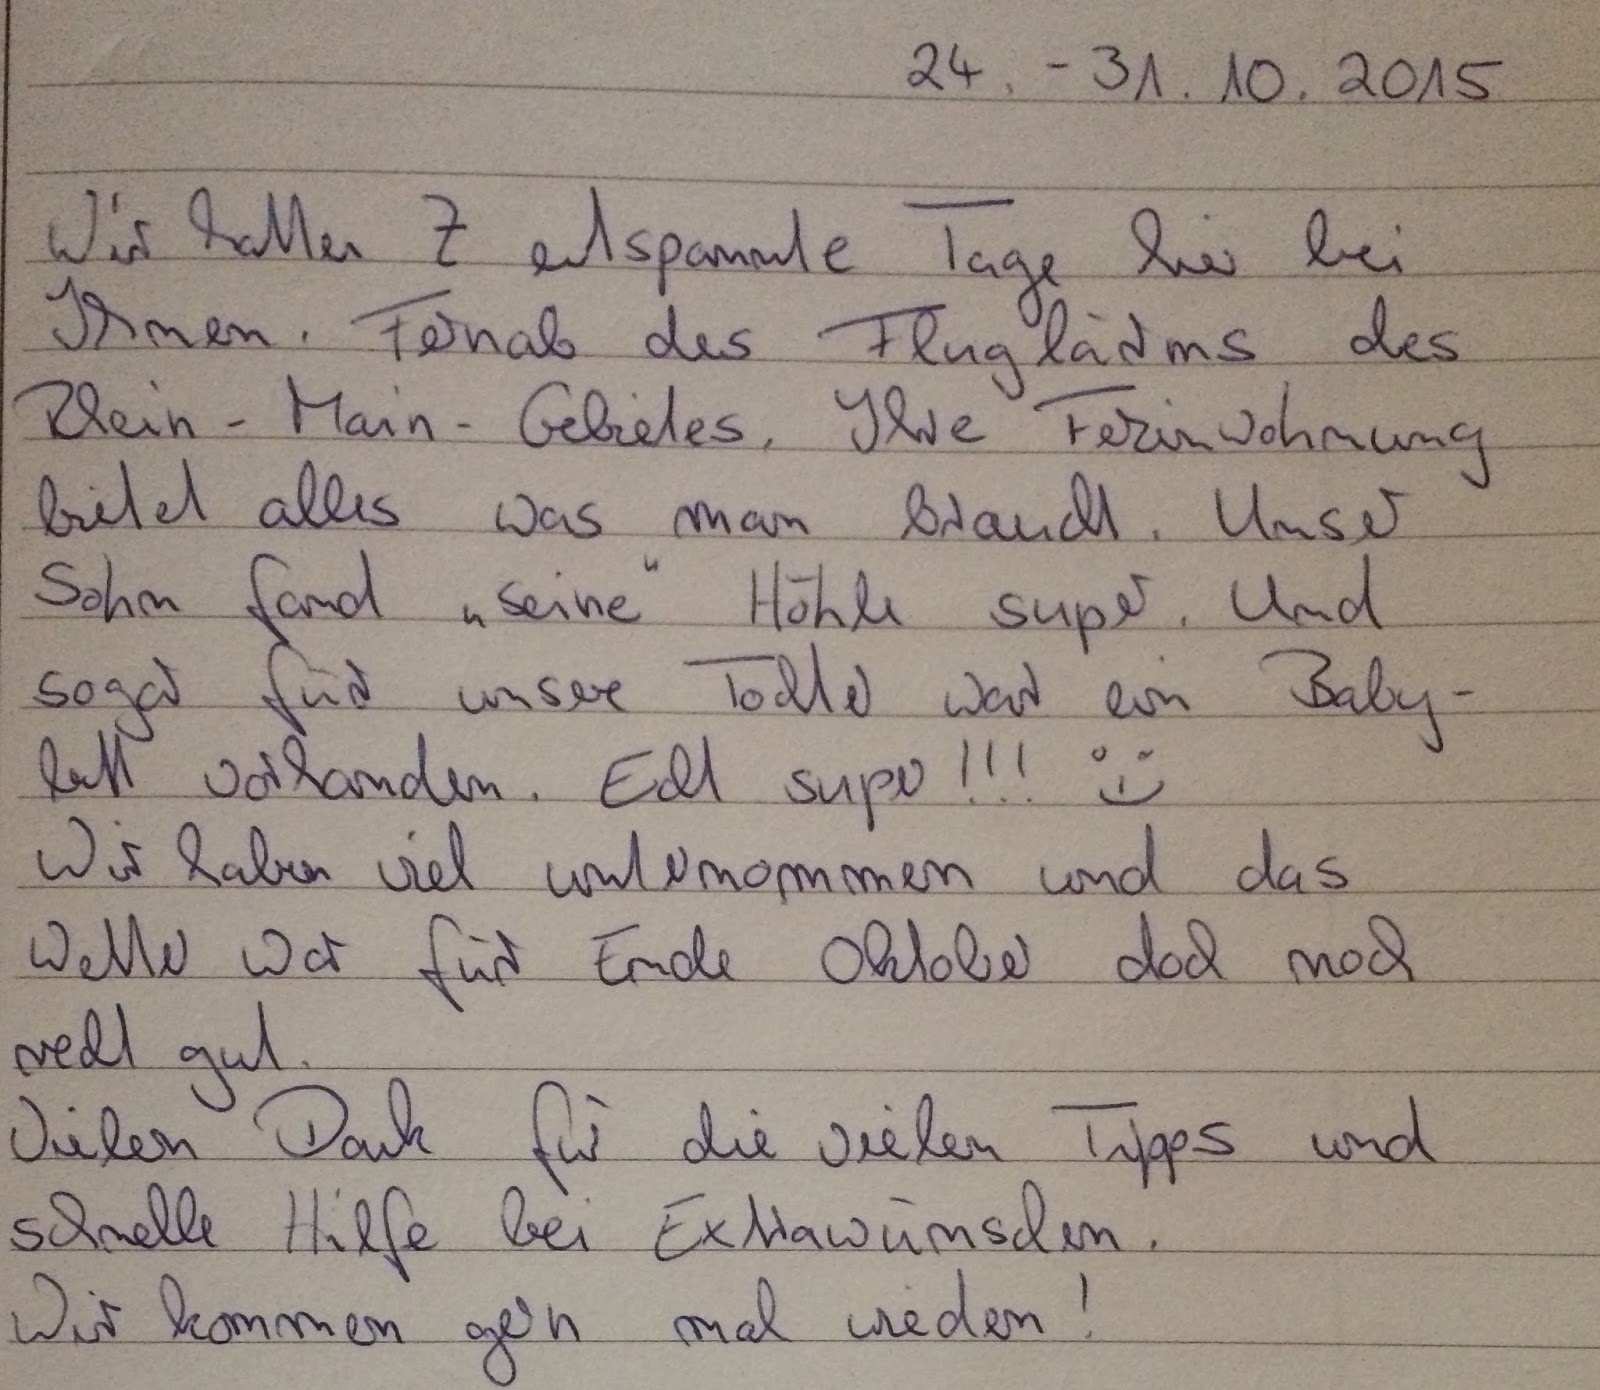 24. - 31. 10. 2015
Wir hatten 7 entspannte Tage hier bei
Ihnen. Fernab des Fluglärms des
Rhein - Main - Gebietes. Ihre Ferinwohnung
bietet alles was man braucht. Unser
Sohn fand „seine“ Höhle super. Und
sogar für unsere Tochter war ein Baby-
bett vorhanden. Echt super!!! :)
Wir haben viel unternommen und das
Wetter war für Ende Oktober doch noch
recht gut.
Vielen Dank für die vielen Tipps und
schnelle Hilfe bei Extrawünschen.
Wir kommen gern mal wieder!